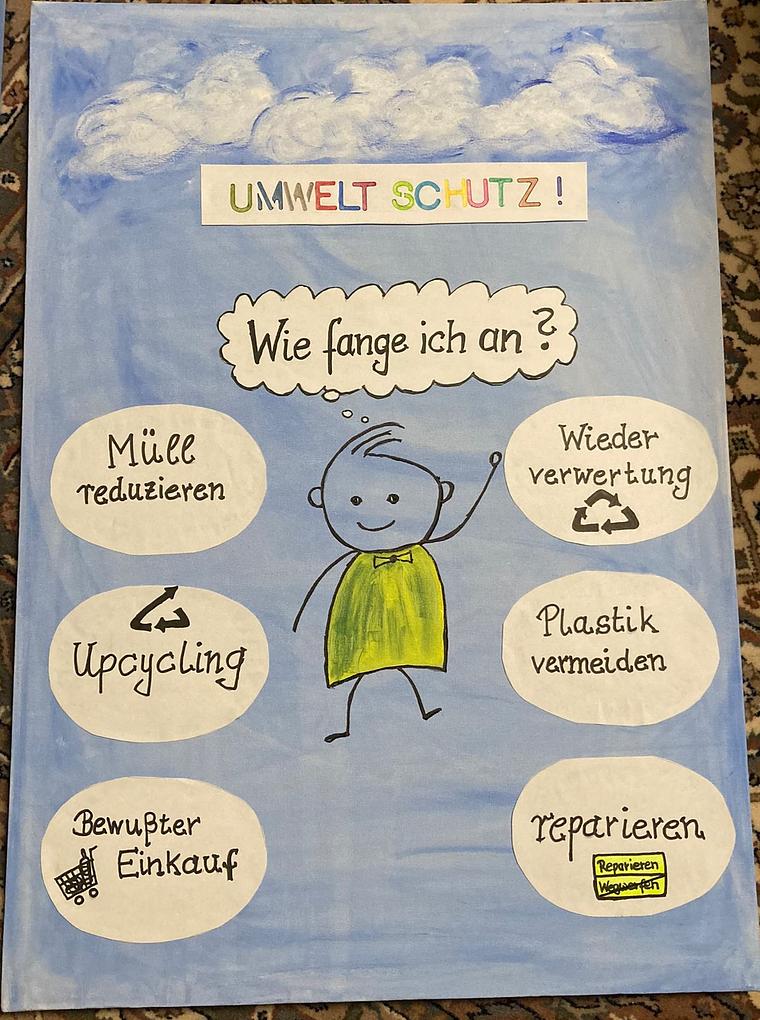 UMWELT SCHUTZ !
Wie fange ich an ?
Müll
reduzieren
Wieder
verwertung
Upcycling
Plastik
vermeiden
Bewußter
Einkauf
reparieren
Reparieren
Wegwerfen